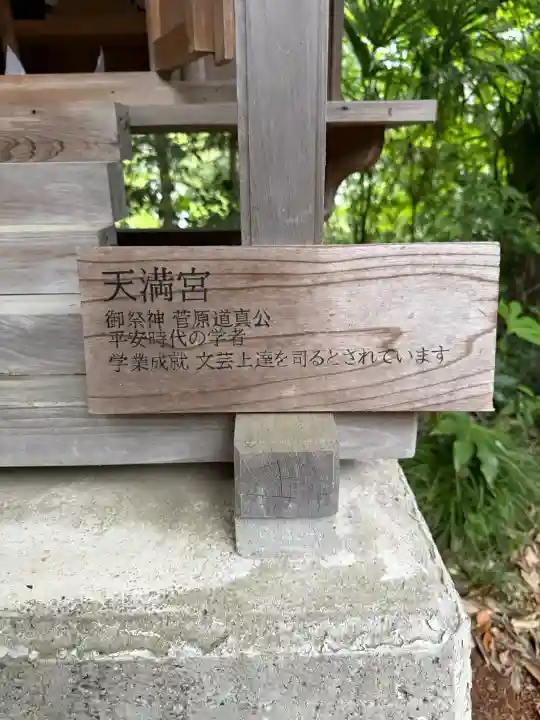 天満宮
御祭神 菅原道真公
平安時代の学者
学業成就 文芸上達を司るとされています